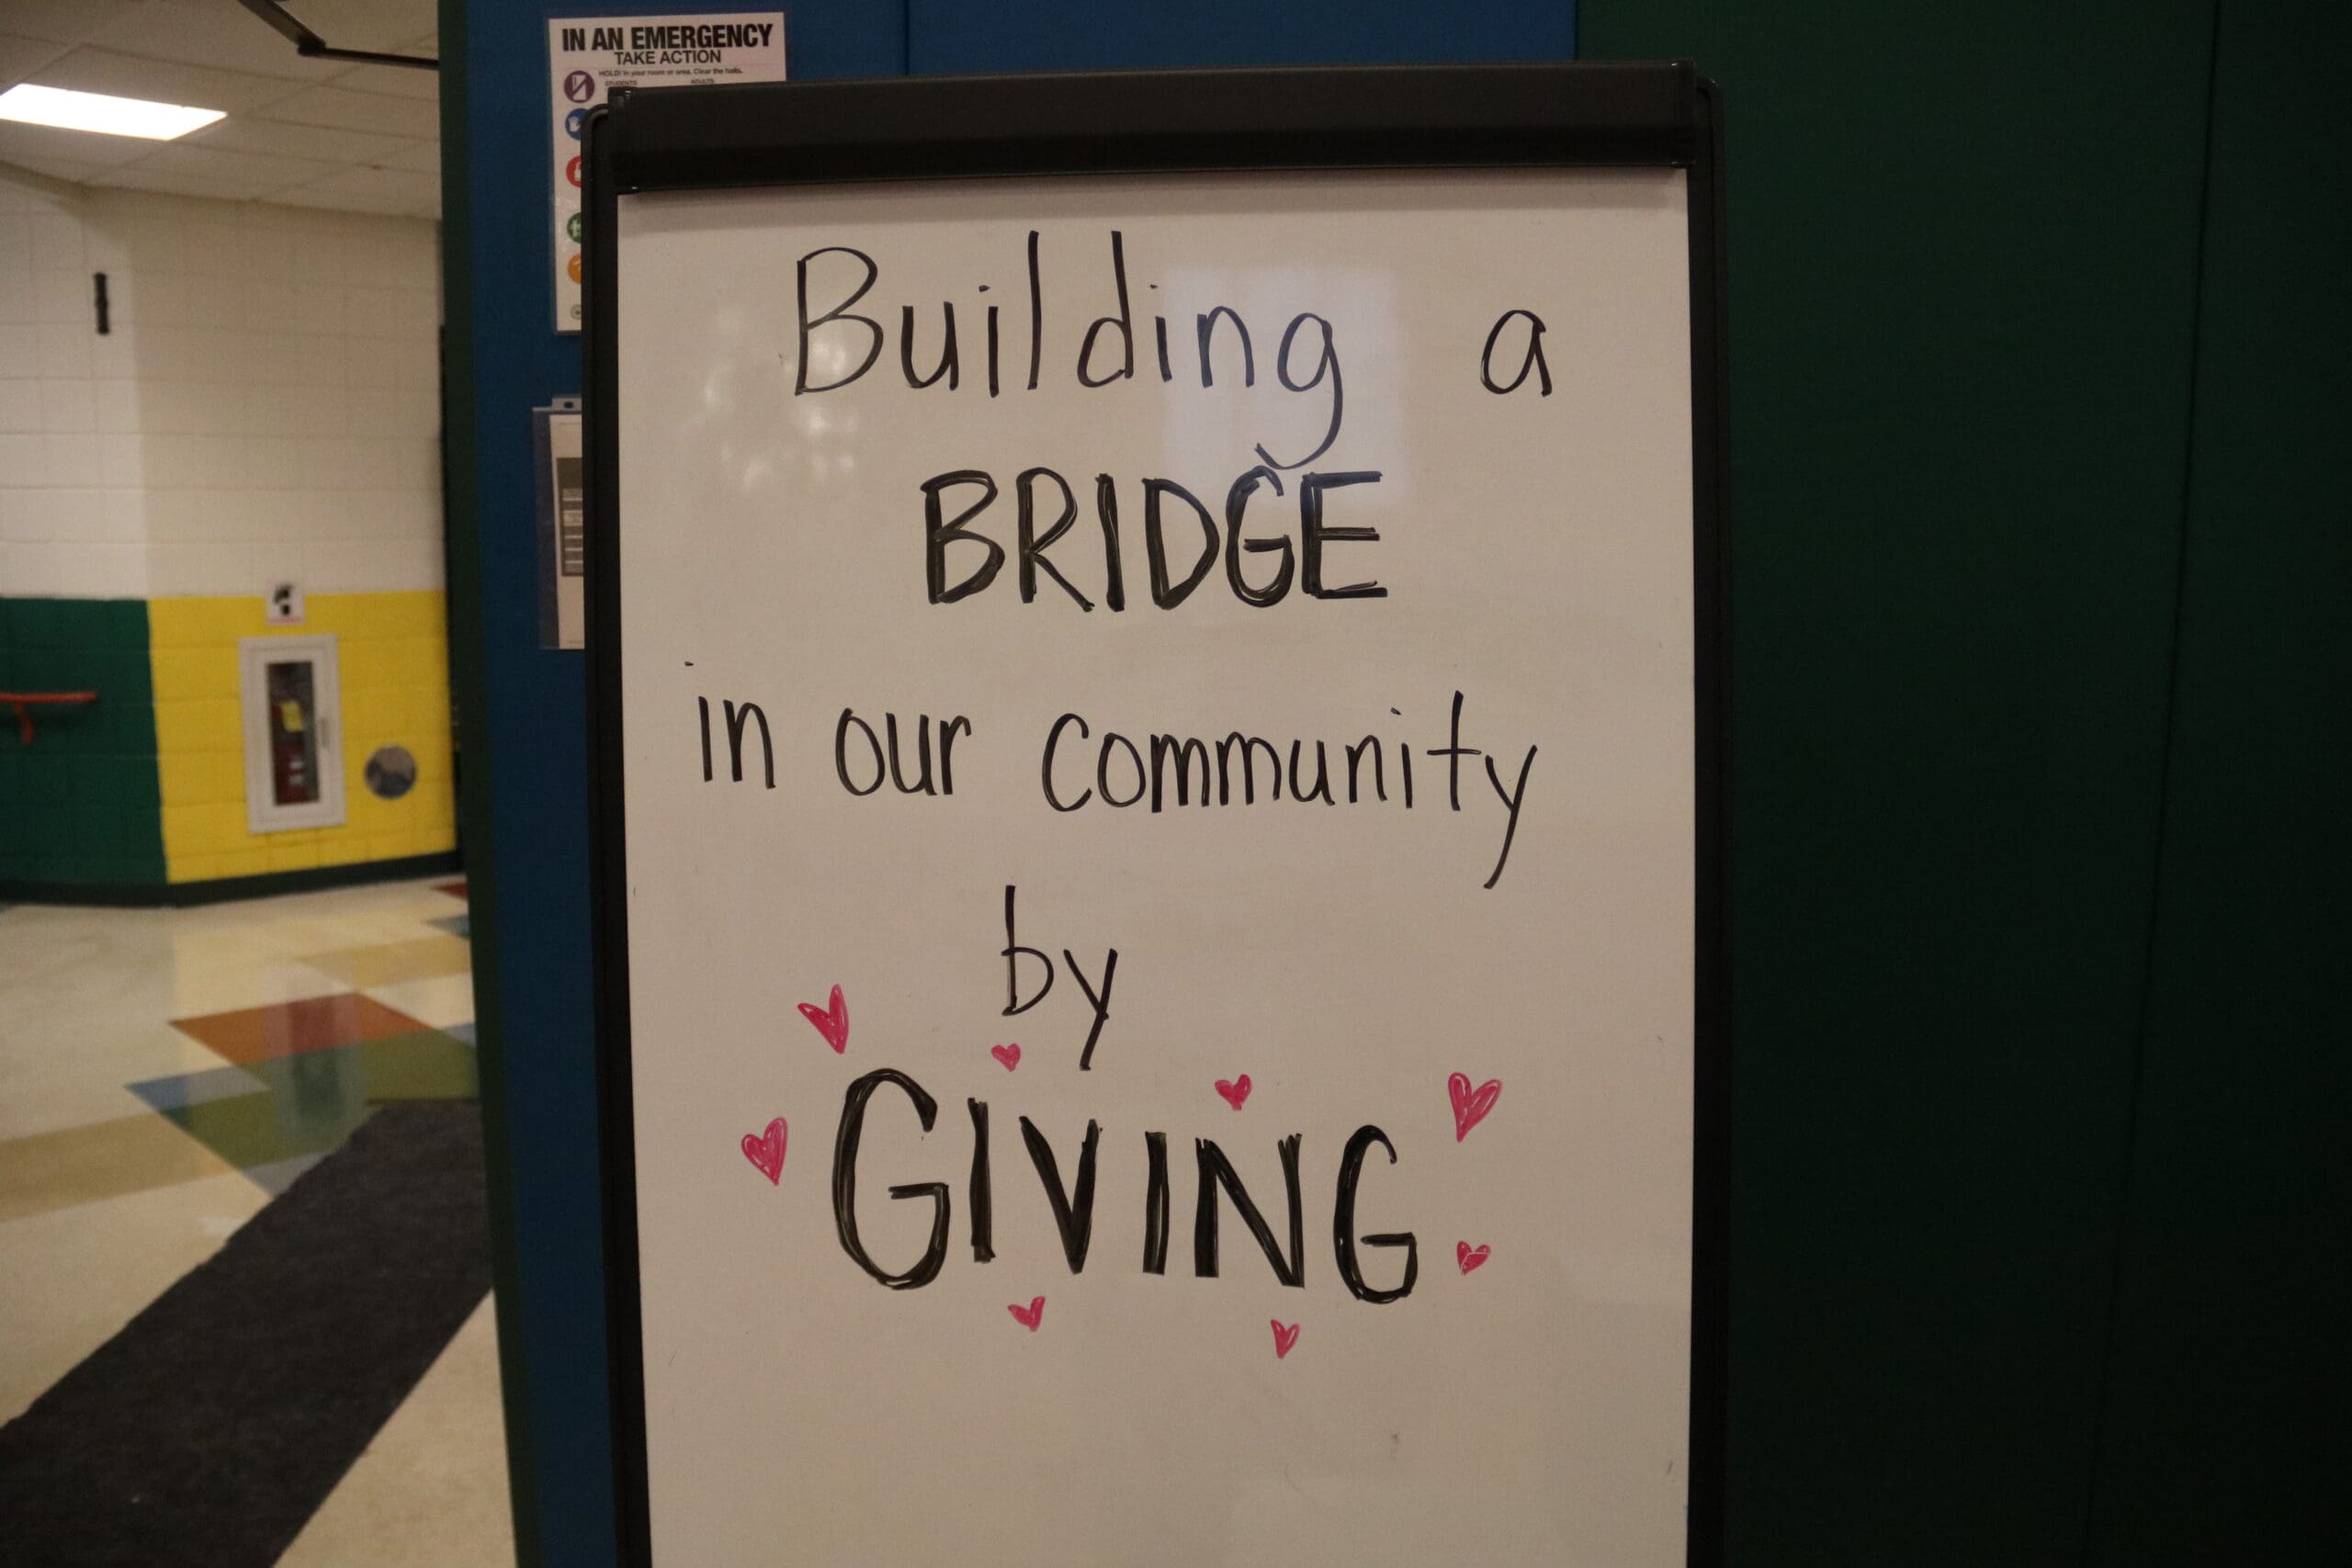 IN AN EMERGENCY
TAKE ACTION
HOLD! In your room or area. Clear the halls.
STUDENTS ADULTS
Building a
BRIDGE
in our community
by
GIVING